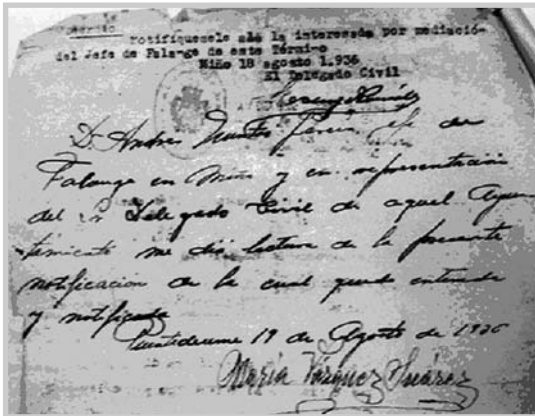 notifíquesele a la interesada por mediació-
del Jefe de Falange de este Térmi-o
Miño 18 agosto 1.936
El Delegado Civil
D. Andres Jefe de
Falange en Miño y en representación
del Sr Delegado Civil de aquel Ayun
tamiento me dio lectura de la presente
notificacion de la cual quedo enterada
y notificada
Puentedeume 19 de Agosto de 1936
María Vázquez Suárez